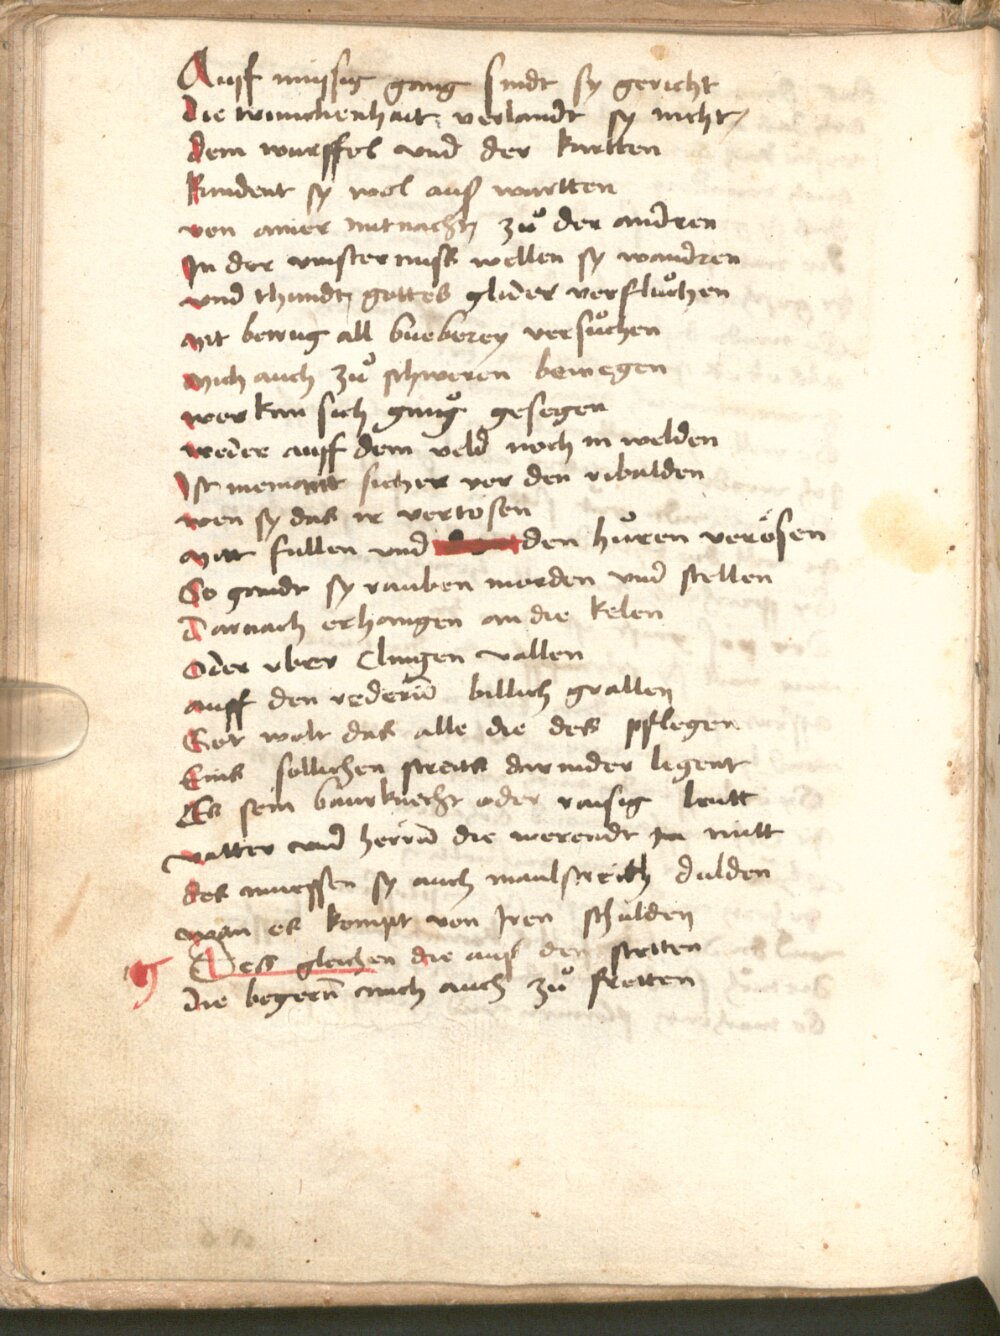 Auff miissig gang sindt sy gericht
die trunckenhait verlandt sy nicht
dem wurffel vnd der kartten
kindent sy wol auß wartten
von ainer mitnacht zuͦ der andren
In der vinsternusß wellen sy wandren
vnd thundt gottes glider verfluͦchen
Mit betrug all bueberey versuͦchen
Mich auch zuͦ schweren bewegen
wer kan sich gnuͦg gesegen
weder auff dem veld noch in welden
Ist niemantt sicher vor den ribalden
wen sy das ir vertosen
Mitt fullen vnd den huͦren verösen
So gandt sy rauben morden vnd stellen
Darnach erhangen an die kelen
Oder vber clingen vallen
auff den rederñ billich grallen
Got wolt das alle die des pflegen
Eins sollichen streits darnider legent
Es sein baurknecht oder raisig leutt
vatter vnd herrñ die werendt in nütt
des muessen sy auch maulstreich dulden
wan es kompt von Iren schulden
Des gleichen die auß den stetten
die begerñ mich auch zuͦ fretten